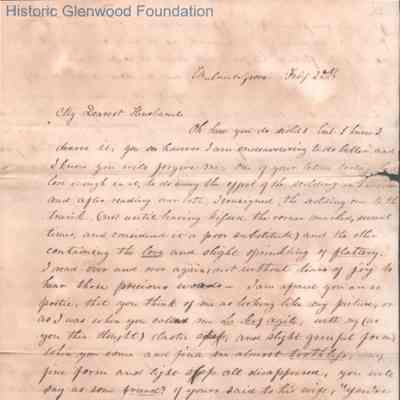 Historic Glenwood Foundation
Feby 22nd
My Dearest Husband
Oh how you do scold; but I know I
deserve it, you see however I am endeavouring to do better, and
I know you will forgive me, one of your letters today had
love enough in it, to do away the effect of the scolding in
and after reading over both, I consigned the scolding one to the
trunk. (not until having kissed the several
times, and considered it a poor substitute) and the other
containing the love and slight sprinkling of flattery.
I read over and over again, not without tears of joy to
hear those precious words — I am afraid you are so
poetic, that you think of me as looking like my picture, or
as I was when you called me with my (as
you then thought) elastic step, and slight graceful form,
when you come and find me almost toothless, my
fine form and light step all disappeared, you will
say as some friend of yours said to his wife, "You're